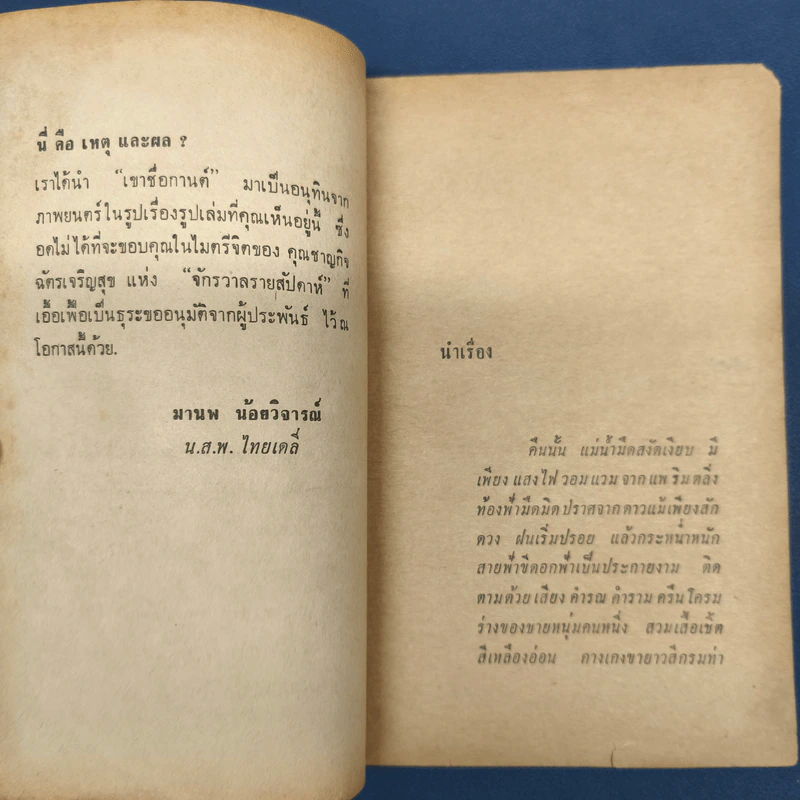 นี่ คือ เหตุ และผล ?
เราได้นำ “เขาชื่อกานต์” มาเป็นอนุทินจาก
ภาพยนตร์ในรูปเรื่องรูปเล่มที่คุณเห็นอยู่นี้ ซึ่ง
อดไม่ได้ที่จะขอบคุณในไมตรีจิตของ คุณชาญกิจ
ฉัตรเจริญสุข แห่ง “จักรวาลรายสัปดาห์” ที่
เอื้อเฟื้อเป็นธุระขออนุมัติจากผู้ประพันธ์ ไว้ ณ
โอกาสนี้ด้วย.
มานพ น้อยวิจารณ์
น.ส.พ. ไทยเดลี่
นำเรื่อง
คืนนั้น แม่น้ำมืดสงัดเงียบ มี
เพียง แสงไฟ วอมแวม จาก แพ ริม ตลิ่ง
ท้องฟ้ามืดมิด ปราศจาก ดาวแม้เพียงสัก
ดวง ฝนเริ่มปรอย แล้วกระหน่ำหนัก
สายฟ้าขีดอกฟ้าเป็นประกายงาม ติด
ตามด้วย เสียง คำรณ คำราม ครืนโครม
ร่างของชายหนุ่มคนหนึ่ง สวมเสื้อเชิ้ต
สีเหลืองอ่อน กางเกงขายาวสีกรมท่า